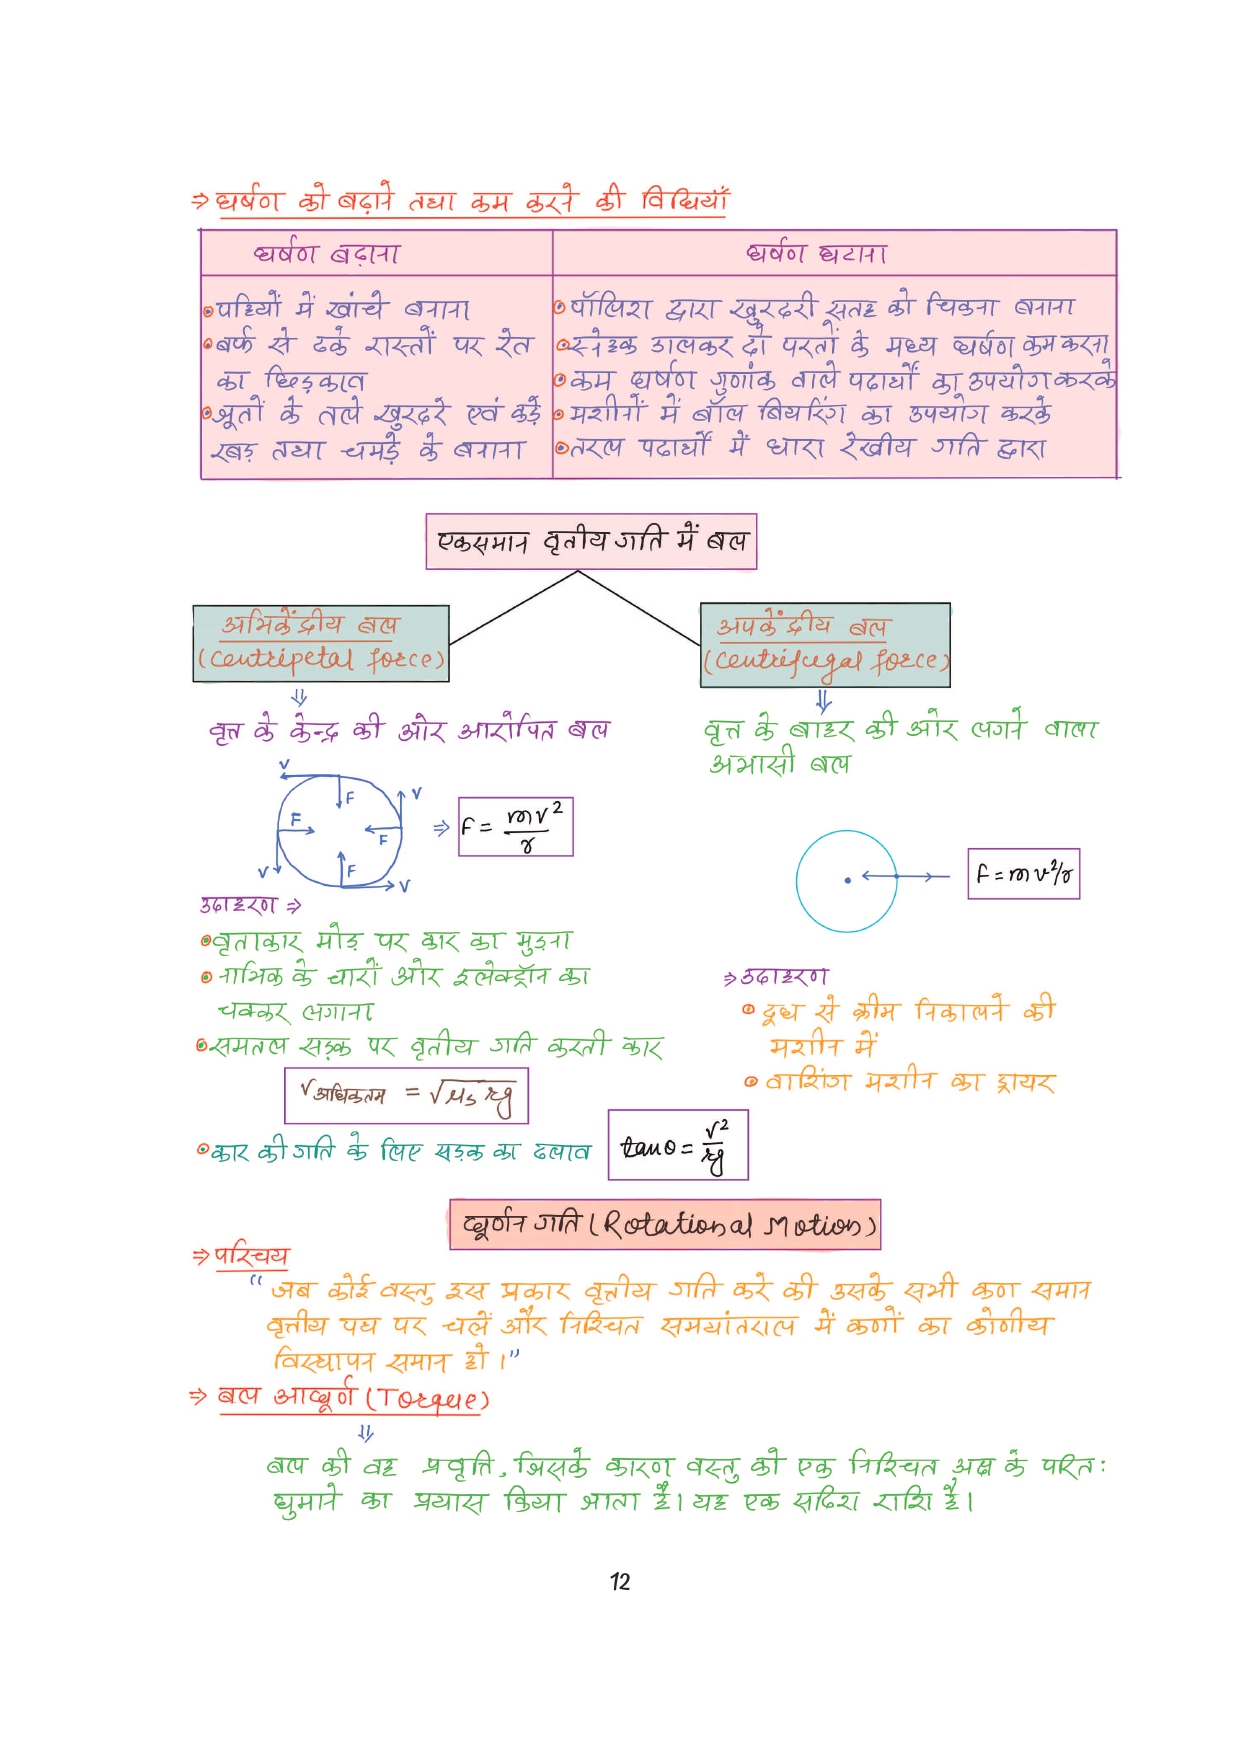 ⇒ घर्षण को बढ़ाने तथा कम करने की विधियाँ
घर्षण बढ़ाना
घर्षण घटाना
पहियों में खांचे बनाना
बर्फ से ढके रास्तों पर रेत
का छिड़काव
जूतों के तले खुरदरे एवं कड़े
रबड़ तथा चमड़े के बनाना
पॉलिश द्वारा खुरदरी सतह को चिकना बनाना
स्नेहक डालकर दो परतों के मध्य घर्षण कम करना
कम घर्षण गुणांक वाले पदार्थों का उपयोग करके
मशीनों में बॉल बियरिंग का उपयोग करके
तरल पदार्थों में धारा रेखीय गति द्वारा
एकसमान वृतीय गति में बल
अभिकेंद्रीय बल
(Centripetal force)
अपकेंद्रीय बल
(Centrifugal force)
⇓
⇓
वृत्त के केन्द्र की ओर आरोपित बल
वृत्त के बाहर की ओर लगने वाला
अभासी बल
v
F
v
F
F
v
F
v
⇒ F = mv²/r
F = mv²/r
उदाहरण ⇒
वृताकार मोड़ पर कार का मुड़ना
नाभिक के चारों ओर इलेक्ट्रॉन का
चक्कर लगाना
समतल सड़क पर वृतीय गति करती कार
v अधिकतम = √μs rg
कार की गति के लिए सड़क का ढलाव
tanθ = v²/rg
⇒ उदाहरण
दूध से क्रीम निकालने की
मशीन में
वाशिंग मशीन का ड्रायर
घूर्णन गति (Rotational Motion)
⇒ परिचय
“ जब कोई वस्तु इस प्रकार वृत्तीय गति करे की उसके सभी कण समान
वृत्तीय पथ पर चलें और निश्चित समयांतराल में कणों का कोणीय
विस्थापन समान हो।”
⇒ बल आघूर्ण (Torque)
⇓
बल की वह प्रवृति, जिसके कारण वस्तु को एक निश्चित अक्ष के परितः
घुमाने का प्रयास किया जाता है। यह एक सदिश राशि है।
12